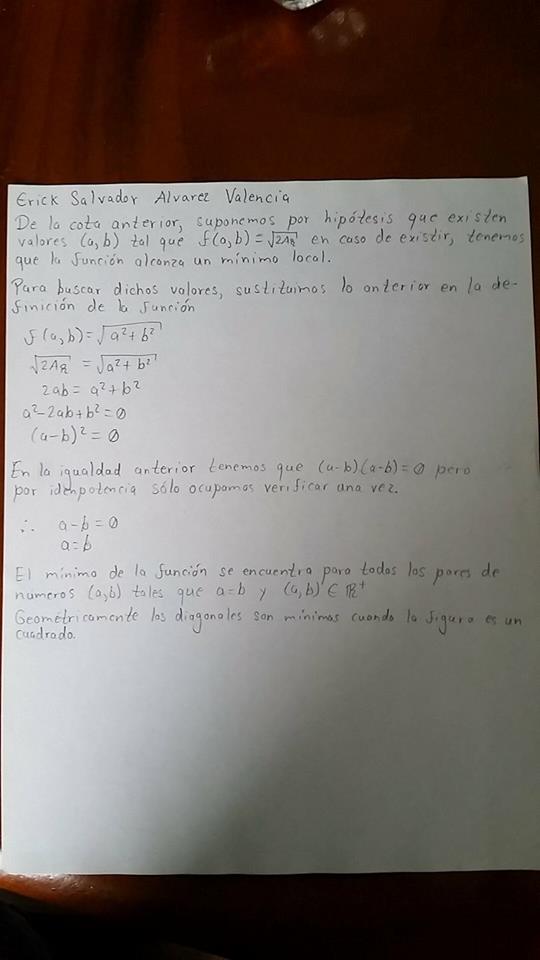 Erick Salvador Alvarez Valencia
De la cota anterior, suponemos por hipótesis que existen
valores (a,b) tal que f(a,b)=√2AR en caso de existir, tenemos
que la función alcanza un mínimo local.
Para buscar dichos valores, sustituimos lo anterior en la de-
finición de la función
f(a,b)=√a²+b²
√2AR = √a²+b²
2ab = a²+b²
a²-2ab+b²=0
(a-b)²=0
En la igualdad anterior tenemos que (a-b)(a-b)=0 pero
por idenpotencia sólo ocupamos verificar una vez.
∴ a-b=0
a=b
El mínimo de la función se encuentra para todos los pares de
numeros (a,b) tales que a=b y (a,b) ∈ ℝ⁺
Geométricamente las diagonales son mínimas cuando la figura es un
cuadrado.